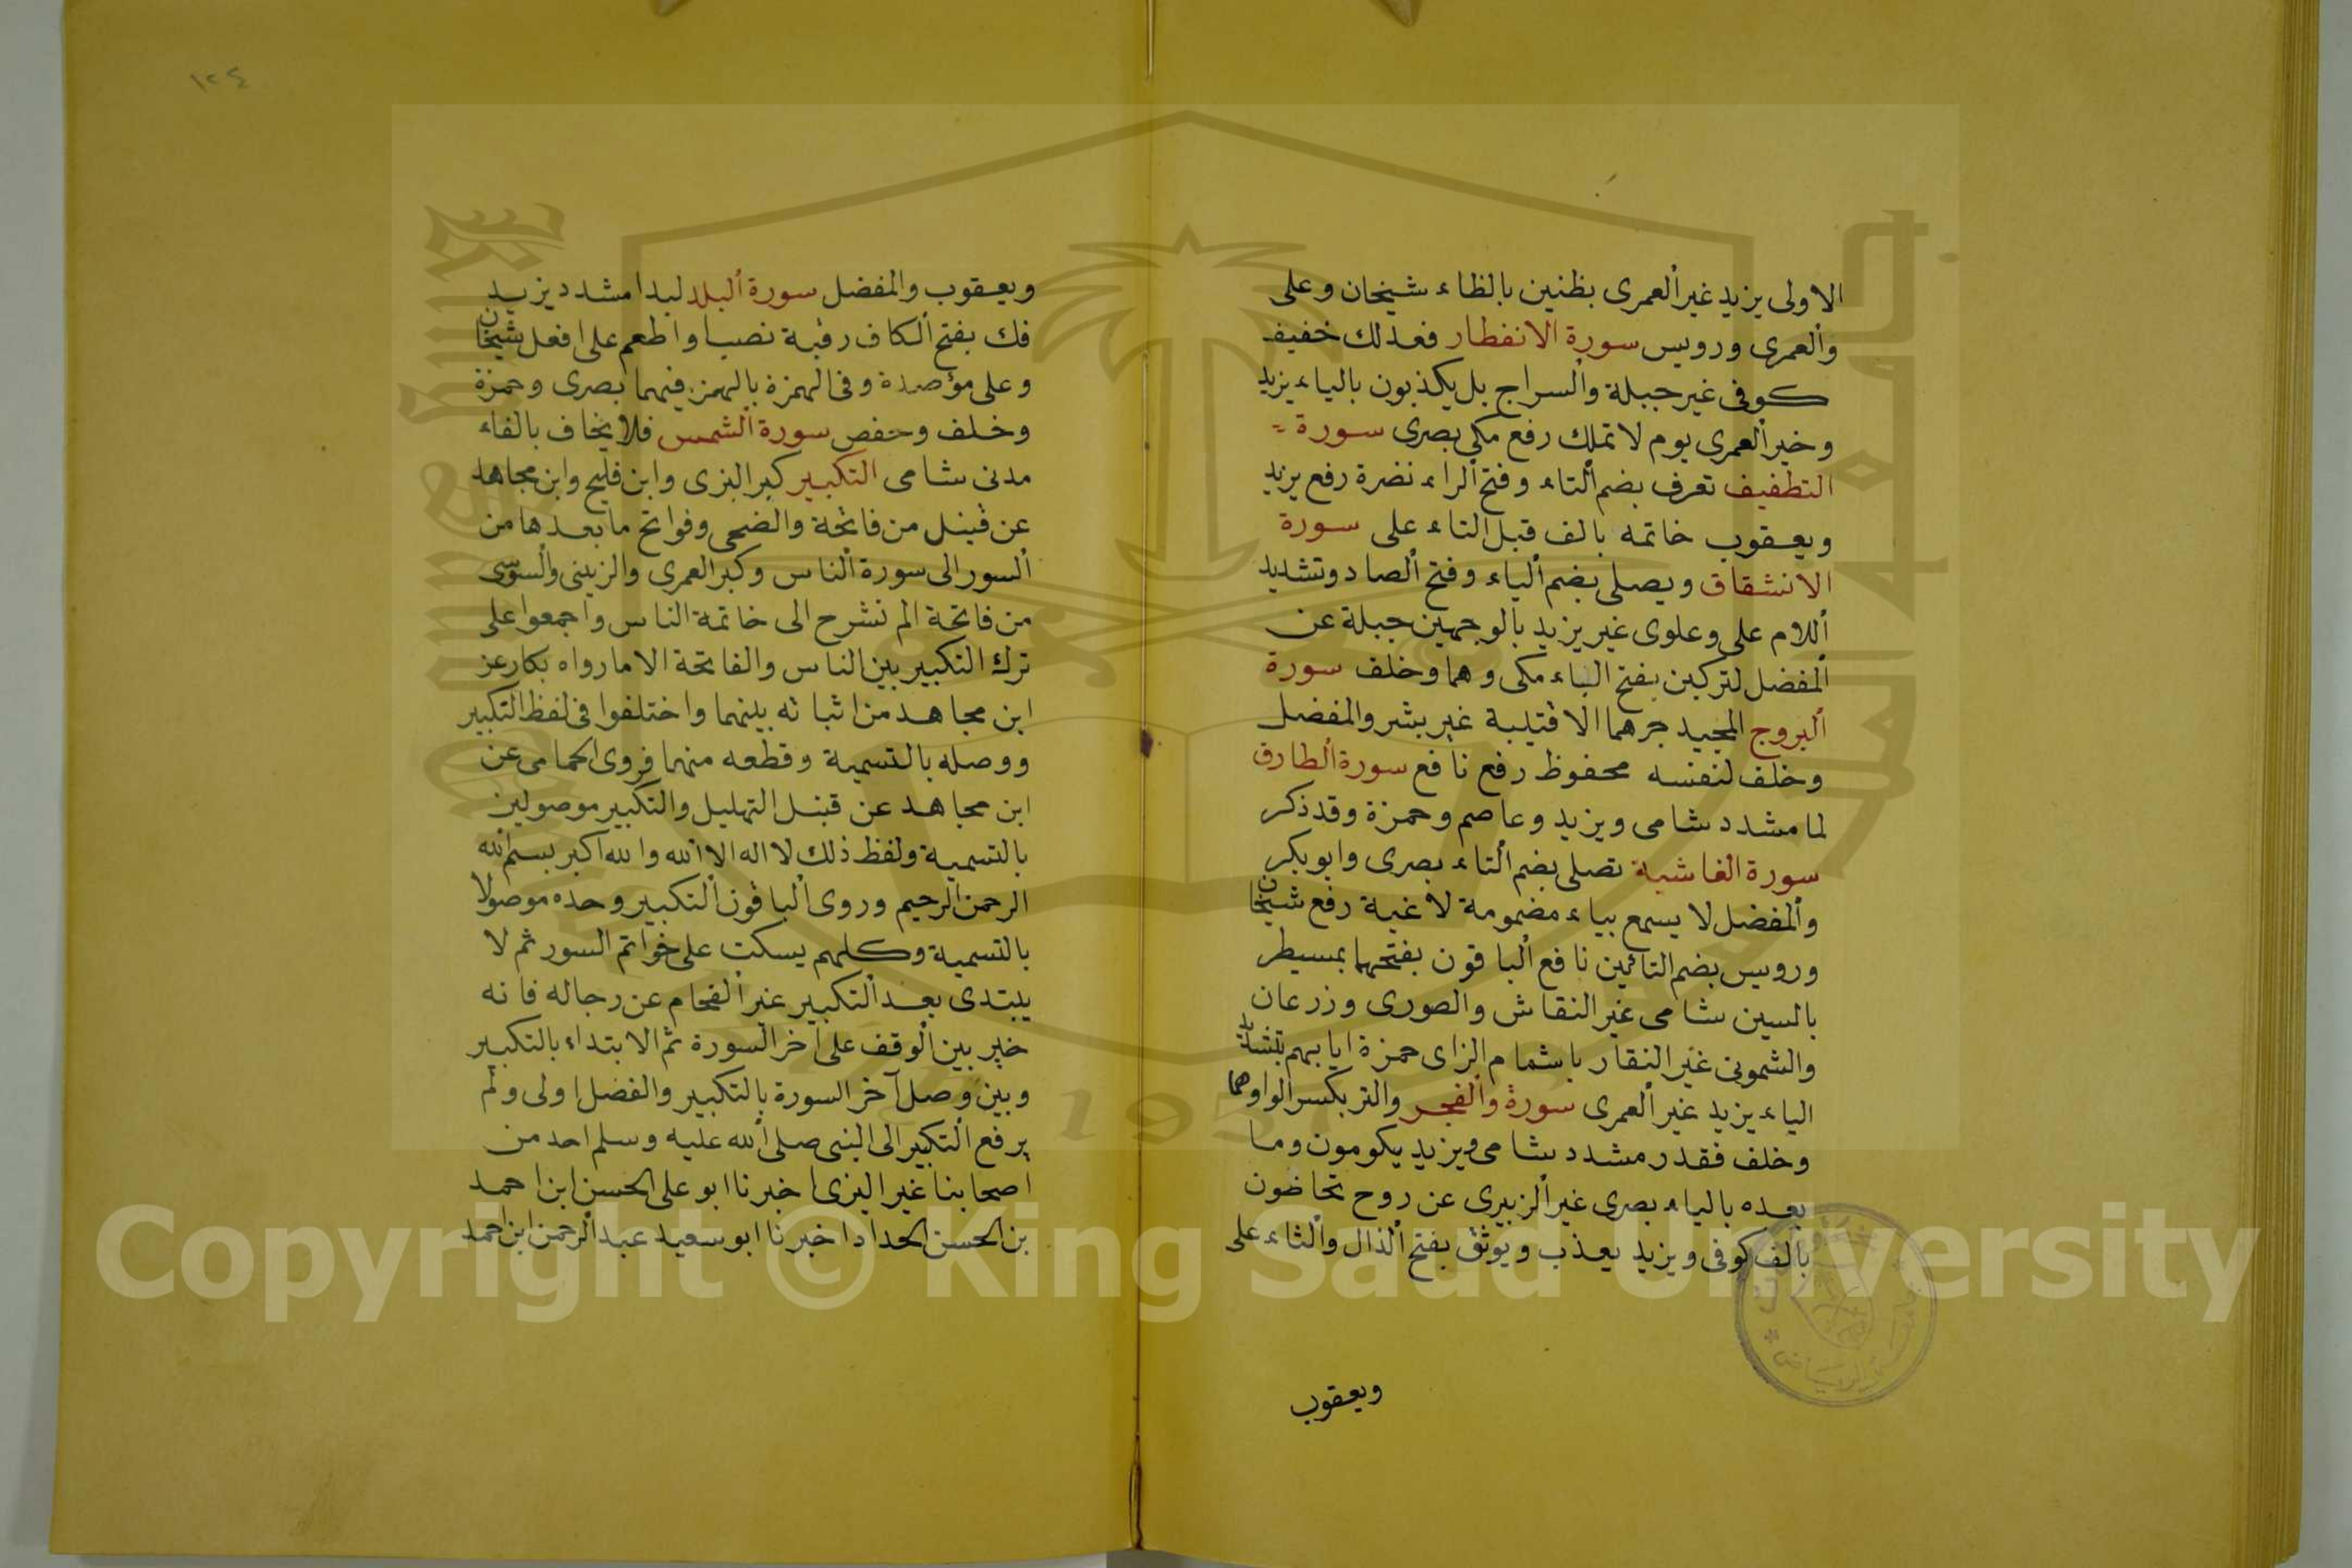 الاولى يزيد غير العمرى بظنين بالظاء شيخان وعلى
والعمرى ورويس سورة الانفطار فعدلك خفيف
كوفى غير جبلة والسراج بل يكذبون بالياء يزيد
وخير العمرى يوم لا تملك رفع مكى بصرى سورة
التطفيف تعرف بضم التاء وفتح الراء نضرة رفع يزيد
ويعقوب خاتمه بالف قبل التاء على سورة
الانشقاق ويصلى بضم الياء وفتح الصاد وتشديد
اللام على وعلوى غير يزيد بالوجهين جبلة عن
المفضل لتركبن بفتح الباء مكى وهما وخلف سورة
البروج المجيد جرهما الا قتيبة غير بشر والمفضل
وخلف لنفسه محفوظ رفع نافع سورة الطارق
لما مشدد شامى ويزيد وعاصم وحمزة وقد ذكر
سورة الغاشية تصلى بضم التاء بصرى وابو بكر
والمفضل لا يسمع بياء مضمومة لاغية رفع شيخان
ورويس بضم التائين نافع الباقون بفتحهما بمسيطر
بالسين شامى غير النقاش والصورى وزرعان
والشمونى غير النقار باشمام الزاى حمزة ايابهم بتشديد
الياء يزيد غير العمرى سورة والفجر والتر بكسر الواو هما
وخلف فقدر مشدد شامى ويزيد يكومون وما
بعده بالياء بصرى غير الزبيرى عن روح تحاضون
بالف كوفى ويزيد يعذب ويوثق بفتح الذال والثاء على
ويعقوب
١٢٤
ويعقوب والمفضل سورة البلد لبدا مشدد يزيد
فك بفتح الكاف رقبة نصبا واطعم على افعل شيخان
وعلى مؤصدة وفى الهمزة بالهمز فيهما بصرى وحمزة
وخلف وحفص سورة الشمس فلا يخاف بالفاء
مدنى شامى التكبير كبر البزى وابن فليح وابن مجاهد
عن قنبل من فاتحة والضحى وفواتح ما بعدها من
السور الى سورة الناس وكبر العمرى والزينبى والسوسى
من فاتحة الم نشرح الى خاتمة الناس واجمعوا على
ترك التكبير بين الناس والفاتحة الا ما رواه بكار عن
ابن مجاهد من اثباته بينهما واختلفوا فى لفظ التكبير
ووصله بالتسمية وقطعه منهما فروى الحمامى عن
ابن مجاهد عن قنبل التهليل والتكبير موصولين
بالتسمية ولفظ ذلك لا اله الا الله والله اكبر بسم الله
الرحمن الرحيم وروى الباقون التكبير وحده موصولا
بالتسمية وكلهم يسكت على خواتم السور ثم لا
يبتدى بعد التكبير غير الفحام عن رجاله فانه
خير بين الوقف على اخر السورة ثم الابتداء بالتكبير
وبين وصل آخر السورة بالتكبير والفضل اولى ولم
يرفع التكبير الى النبى صلى الله عليه وسلم احد من
اصحابنا غير البزى اخبرنا ابو على الحسن ابن احمد
بن الحسن الحداد اخبرنا ابو سعيد عبد الرحمن ابن احمد
Copyright © King Saud University